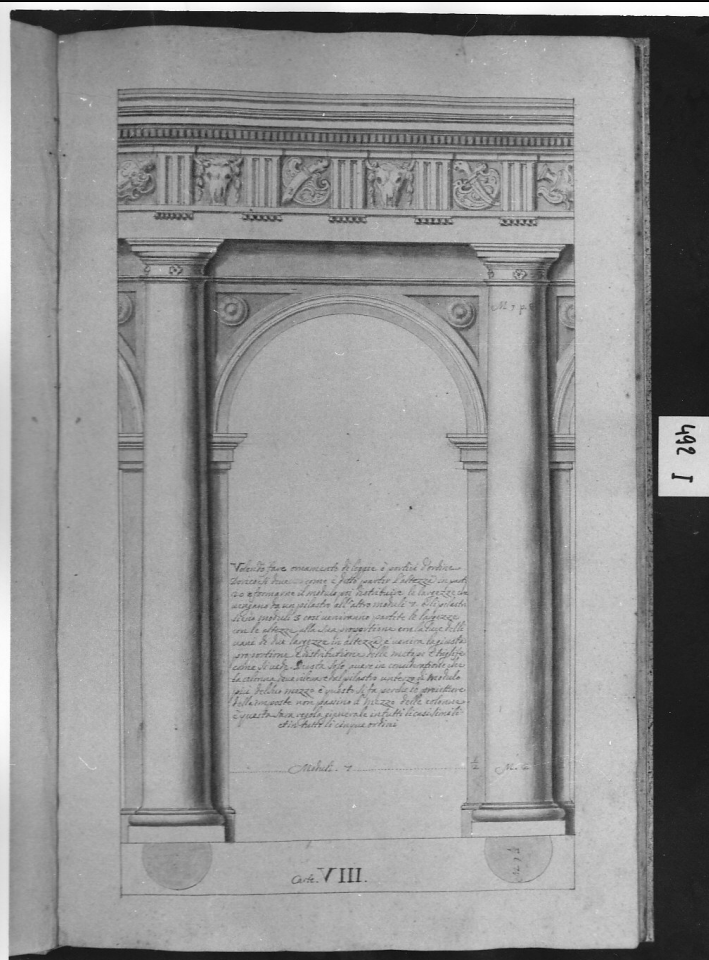 M 1 4/5
Volendo fare ornamento di loggie ò portici d'ordine
Dorico si deue come è detto partir l'altezza in parti
20 e formarne il modulo poi distribuire le larezze che
uenghano da un pilastro all'altro moduli 7. e li pilastri
siano moduli 3 cosi ueneranno partite le larghezze
con le altezze alla sua proportione con la luce delli
uani di due larezze in altezza e uenira la giusta
proportione e distributione delle metope e triglifi
come si uede. Resta solo auere in consideratione che
la colonna deue uscire dal pilastro un terzo di modulo
più del suo mezzo e questo si fa perche lo proietture
delle imposte non passino il mezzo delle colonne
e questa sara regola generale in tutti li casi simili
et in tutti li cinque ordini
Moduli. 7
M. 2
Carte. VIII.
492 I